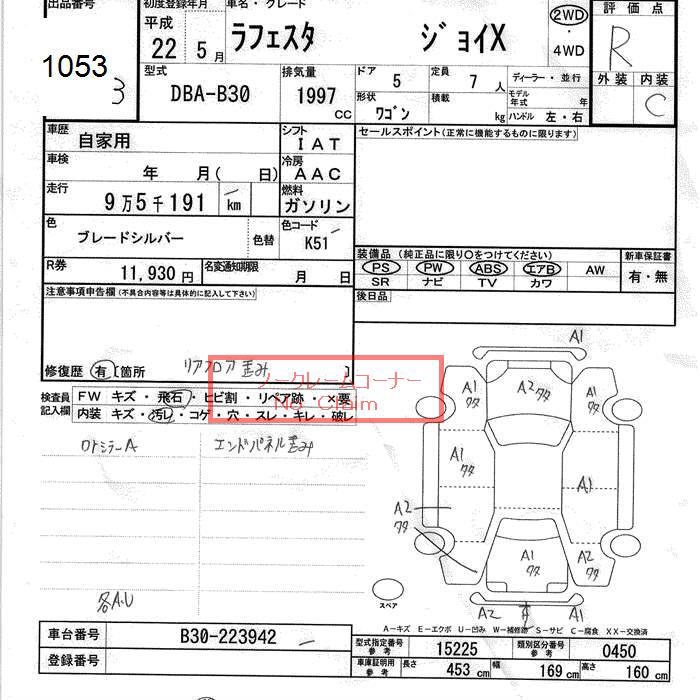 出品番号
初度登録年月
車名・グレード
評価点
平成
22 5月
ラフェスタ ジョイX
2WD
・
4WD
R
1053
3
外装 内装
C
型式
DBA-B30
排気量
1997
cc
ドア 5
定員 7 人
ディーラー・並行
形状 ワゴン
積載 kg
モデル年式 年
ハンドル 左・右
車歴 自家用
シフト IAT
セールスポイント(正常に機能するものに限ります)
車検 年 月( 日)
冷房 AAC
走行 9万5千191 km
燃料 ガソリン
色 ブレードシルバー
色替
色コード K51
装備品 (純正品に限り○をつけてください)
新車保証書
PS PW ABS エアB AW
有・無
SR ナビ TV カワ
R券 11,930円
名変通知期限 月 日
後日品
注意事項申告欄(不具合内容等は具体的に記入して下さい)
修復歴 有 [箇所 リアフロア歪み ]
ノークレームコーナー
No Claim
検査員記入欄
FW キズ・飛石・ヒビ割・リペア跡・×要
内装 キズ・汚レ・コゲ・穴・スレ・キレ・破レ
エンドパネル歪み
各A.U
A1
A1 ワタ
A2 ワタ
A1 ワタ
A1 ワタ
A1
A2 ワタ
A1 ワタ
A2 ワタ
スペア
A2
A1
A－キズ E－エクボ U－凹み W－補修跡 S－サビ C－腐食 XX－交換済
車台番号 B30-223942
型式指定番号 参考 15225
類別区分番号 参考 0450
登録番号
車庫証明用 参考
長さ 453 cm
幅 169 cm
高さ 160 cm